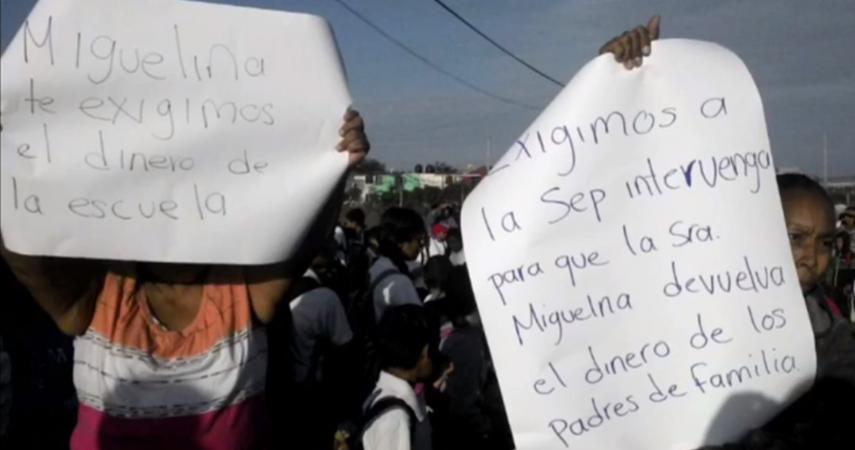 Miguelina
te exigimos
el dinero de
la escuela
Exigimos a
la Sep intervenga
para que la Sra.
Miguelna devuelva
el dinero de los
Padres de Familia.